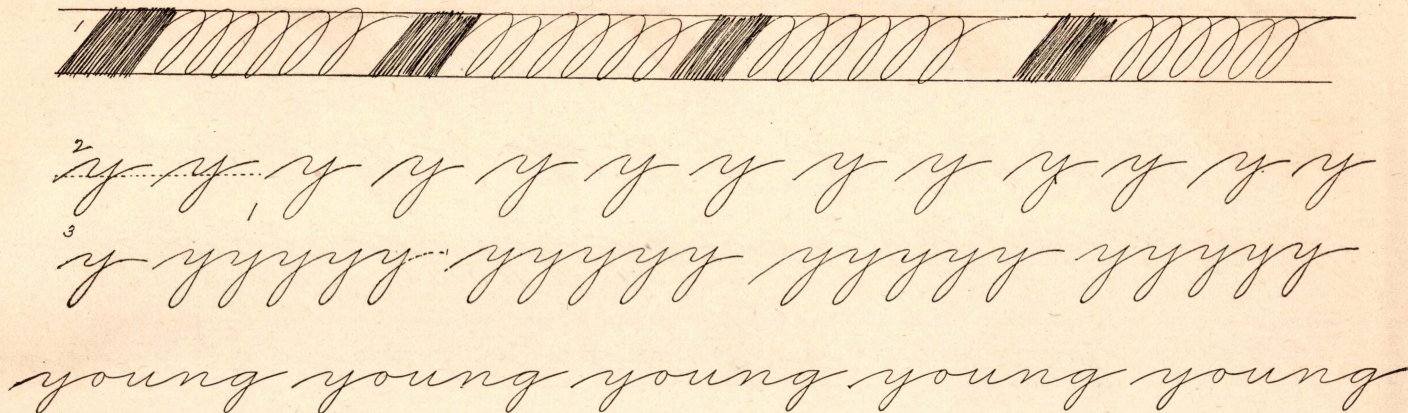 1
2 y y y y y y y y y y y y y
3 y yyyyy yyyyy yyyyy yyyyy
young young young young young